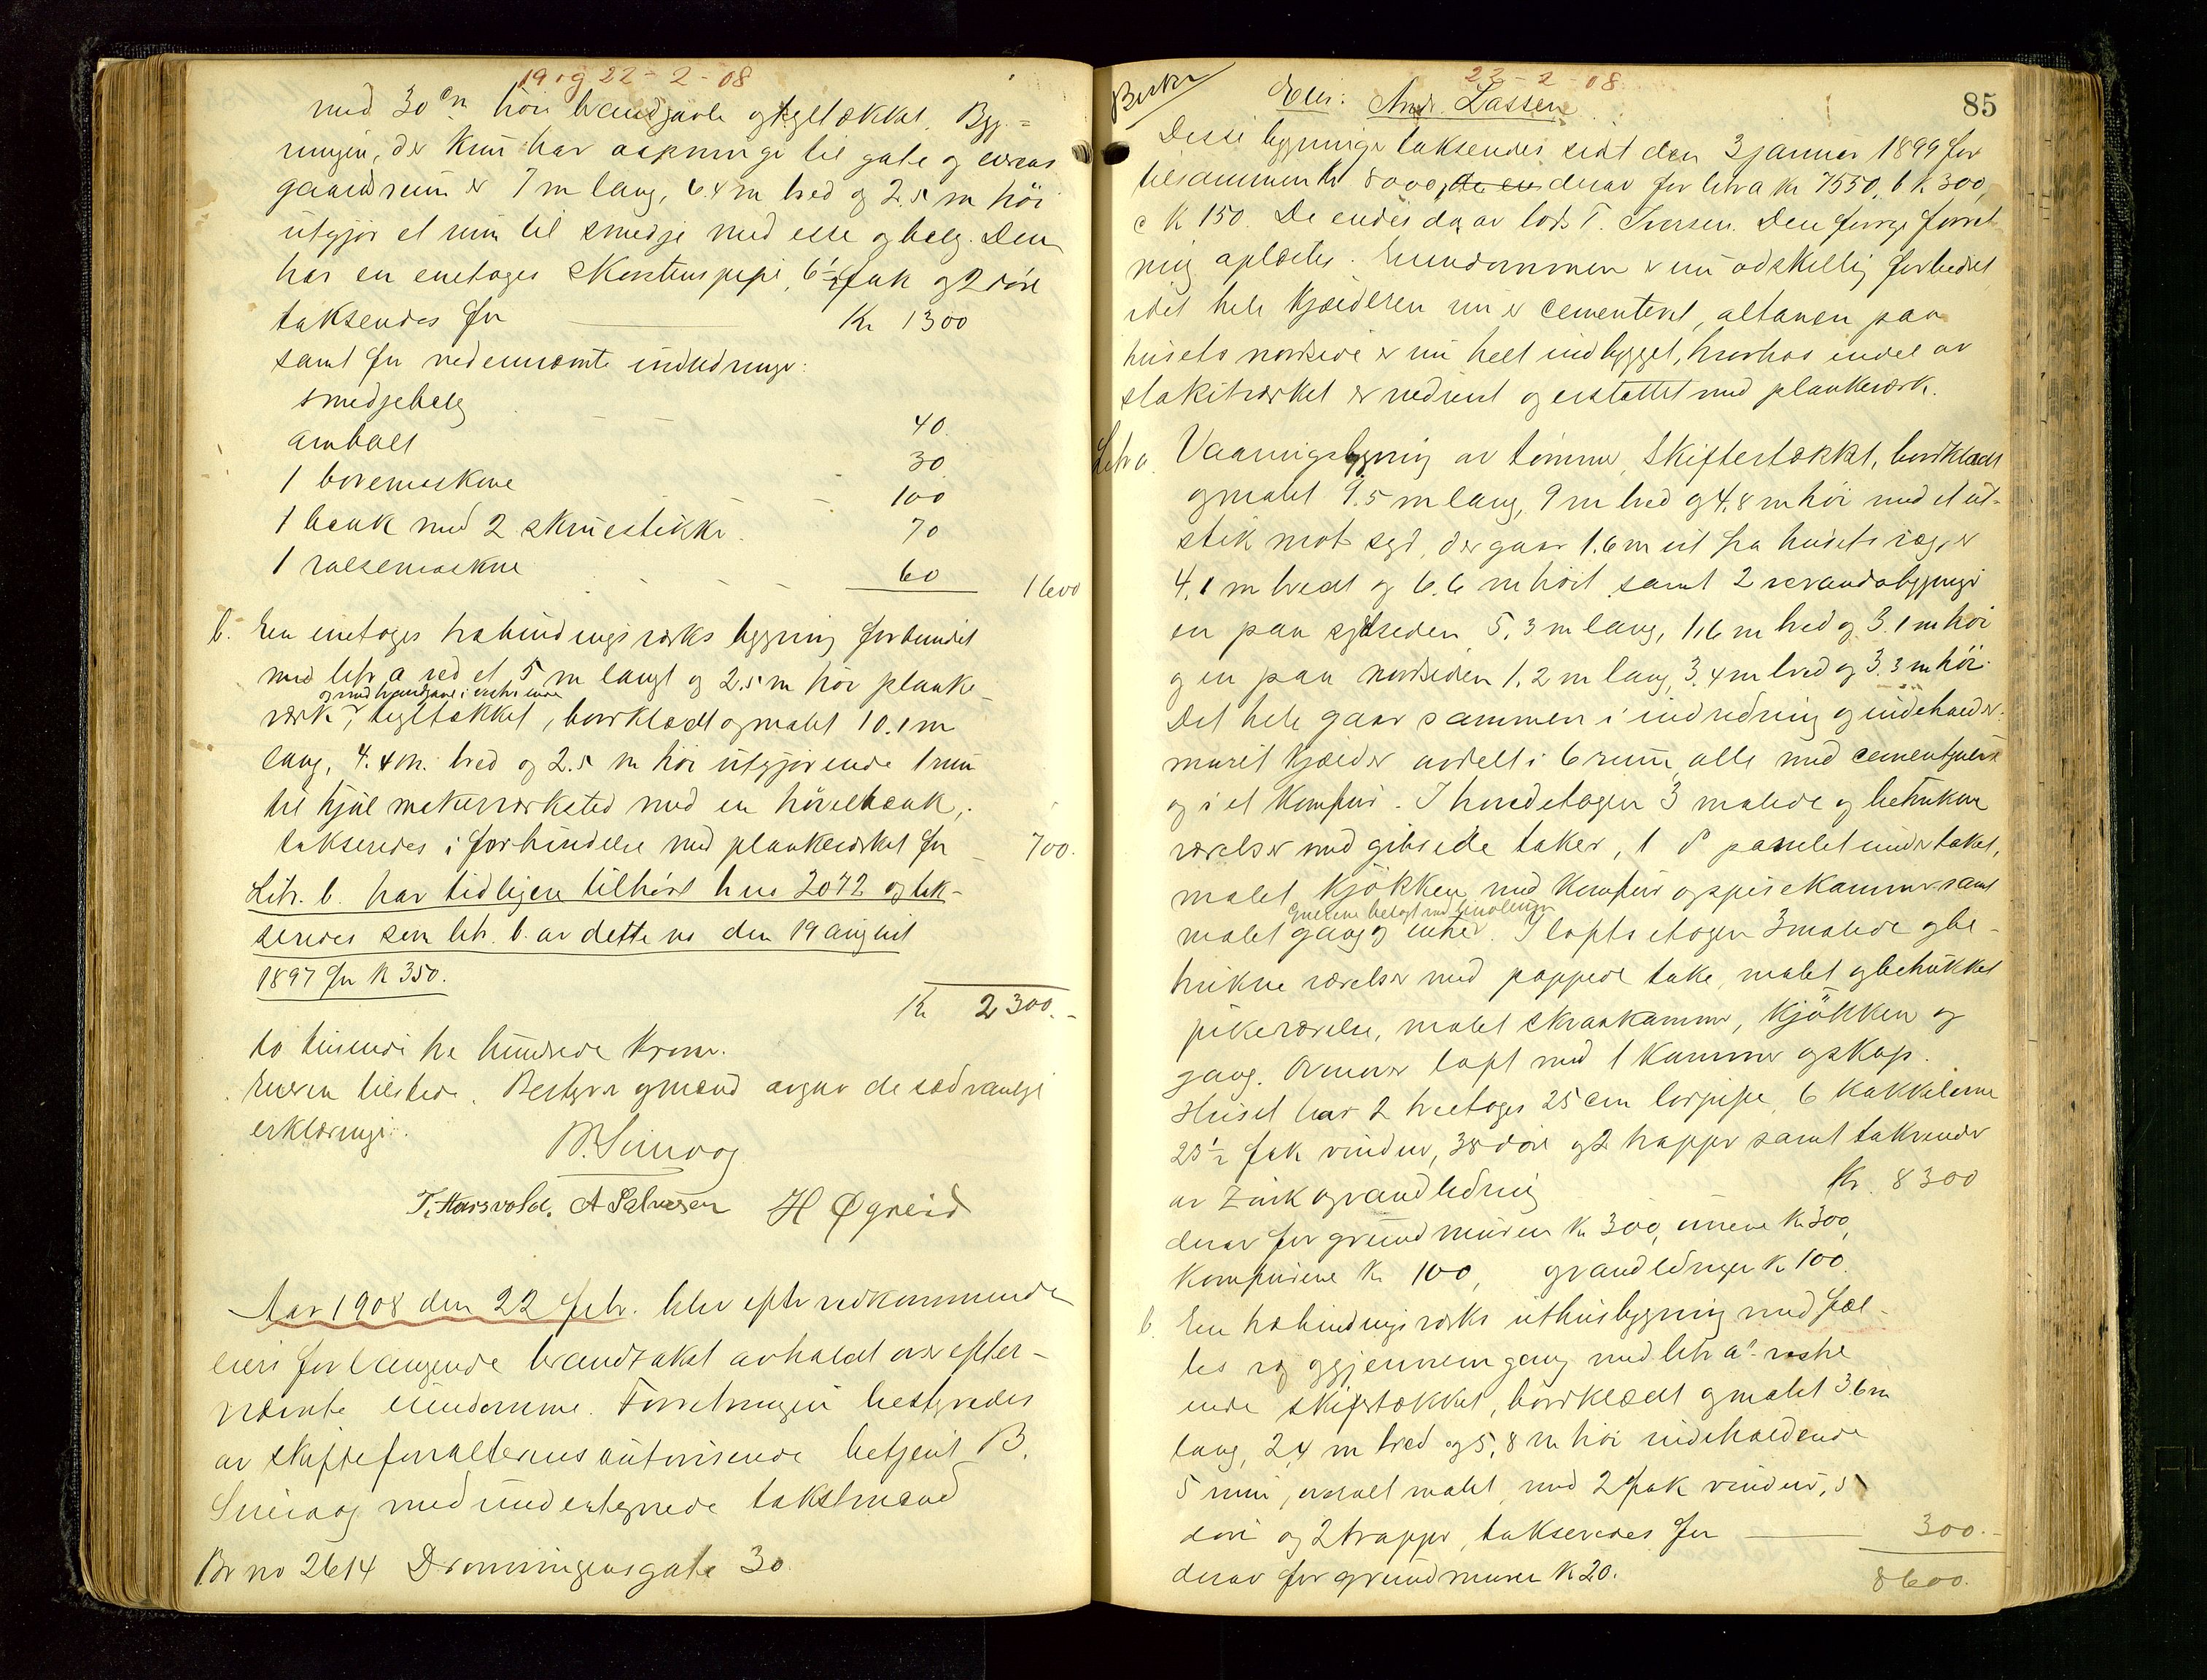 19 og 22 - 2 - 08
med 30 cm høi brandgavle og tegltækket. Byg-
ningen, der kun har aapninger til gate og eierens
gaardsrum er 7 m lang, 6.4 m bred og 2.5 m høi
utgjør et rum til smedje med esse og belg. Den
har en enetages skorstenspipe, 6½ fak og 2 døre
takseredes for Kr 1300
samt for nedennævnte indredninger:
smedjebelg 40.
ambolt 30
1 boremaskine 100
1 bænk med 2 skruestikker 70
1 valsemaskine 60 1600
b. En enetages træbindingsværks bygning forbundet
med litr a ved et 5 m langt og 2.5 m høi planke-
og med brandgavl i vestre ende
værk, tegltækket, bordklædt og malet 10.1 m
lang, 4.4 m. bred og 2.5 m høi utgjørende 1 rum
til hjulmakerværksted med en høvelbænk,
takseredes i forbindelse med plankeværket for 700.
Litr. b. har tidligere tilhørt brno 2072 og tak-
seredes som litr. b. av dette no den 19 august
1897 for kr 350.
Kr 2300.-
to tusende tre hundrede kroner.
Eieren tilstede. Bestyrer og mænd avgav de sædvanlige
erklæringer.
B. Sinvog
T. Horsvold. A Salvesen H Øgreid
Aar 1908 den 22 febr. blev efter vedkommende
eiers forlangende brandtakst avholdt over efter-
nævnte eiendomme. Forretningen bestyredes
av skifteforvalterens autoriserede betjent B.
Sinvog med undertegnede takstmænd
Br no 2614 Dronningensgate 30.
22 - 2 - 08
85
Eier: Andr. Lassen
Disse bygninger takseredes sidst den 3 januar 1899 for
tilsammen kr 8000, derav for litr a kr 7550, b kr 300,
c kr 150. De eiedes da av lods T. Iversen. Den forrige forret-
ning oplæstes. Eiendommen er nu adskillig forbedret
idet hele kjælderen nu er cementeret, altanen paa
husets nordside er nu helt indbygget, hvorhos endel av
stakitværket er nedrevet og erstattet med plankeværk.
Litr a. Vaaningsbygning av tømmer, skifertækket, bordklædt
og malet 9.5 m lang, 9 m bred og 4.8 m høi med et ut-
stik mot syd, der gaar 1.6 m ut fra husets væg, er
4.1 m bredt og 6.6 m høit samt 2 verandabygninger
en paa sydsiden 5.3 m lang, 1,6 m bred og 3.1 m høi
og en paa nordsiden 1.2 m lang, 3.4 m bred og 3.3 m høi.
Det hele gaar sammen i indredning og indeholder:
muret kjælder avdelt i 6 rum, alle med cementgulv
og i et komfur. I hovedetagen 3 malede og betrukne
værelser med gibsede taker, 1 do panelet under taket,
malet kjøkken med komfur og spisekammer samt
Gulvene belagt med linoleum
malet gang og entré. I loftsetagen 3 malede og be-
trukne værelser med pappede take, malet og betrukket
pikeværelse, malet skraakammer, kjøkken og
gang. Ovenover loft med 1 kammer og skap.
Huset har 2 treetages 25 cm lorpipe, 6 kakkelovne
23½ fak vinduer, 38 døre og 2 trapper samt takrender
av zink og vandledning Kr. 8300
derav for grundmuren kr 300, ovnene kr 300,
komfurene kr 100, og vandledningen kr 100.
b. En træbindingsværks uthusbygning med fæl-
les væg og gjennemgang med litr a's vestre
ende skifertækket, bordklædt og malet 3.6 m
lang, 2,4 m bred og 5,8 m høi indeholdende
5 rum, overalt malet, med 2 fak vinduer, 5
døre og 2 trapper, takseredes for 300.-
derav for grundmuren kr 20. 8600.